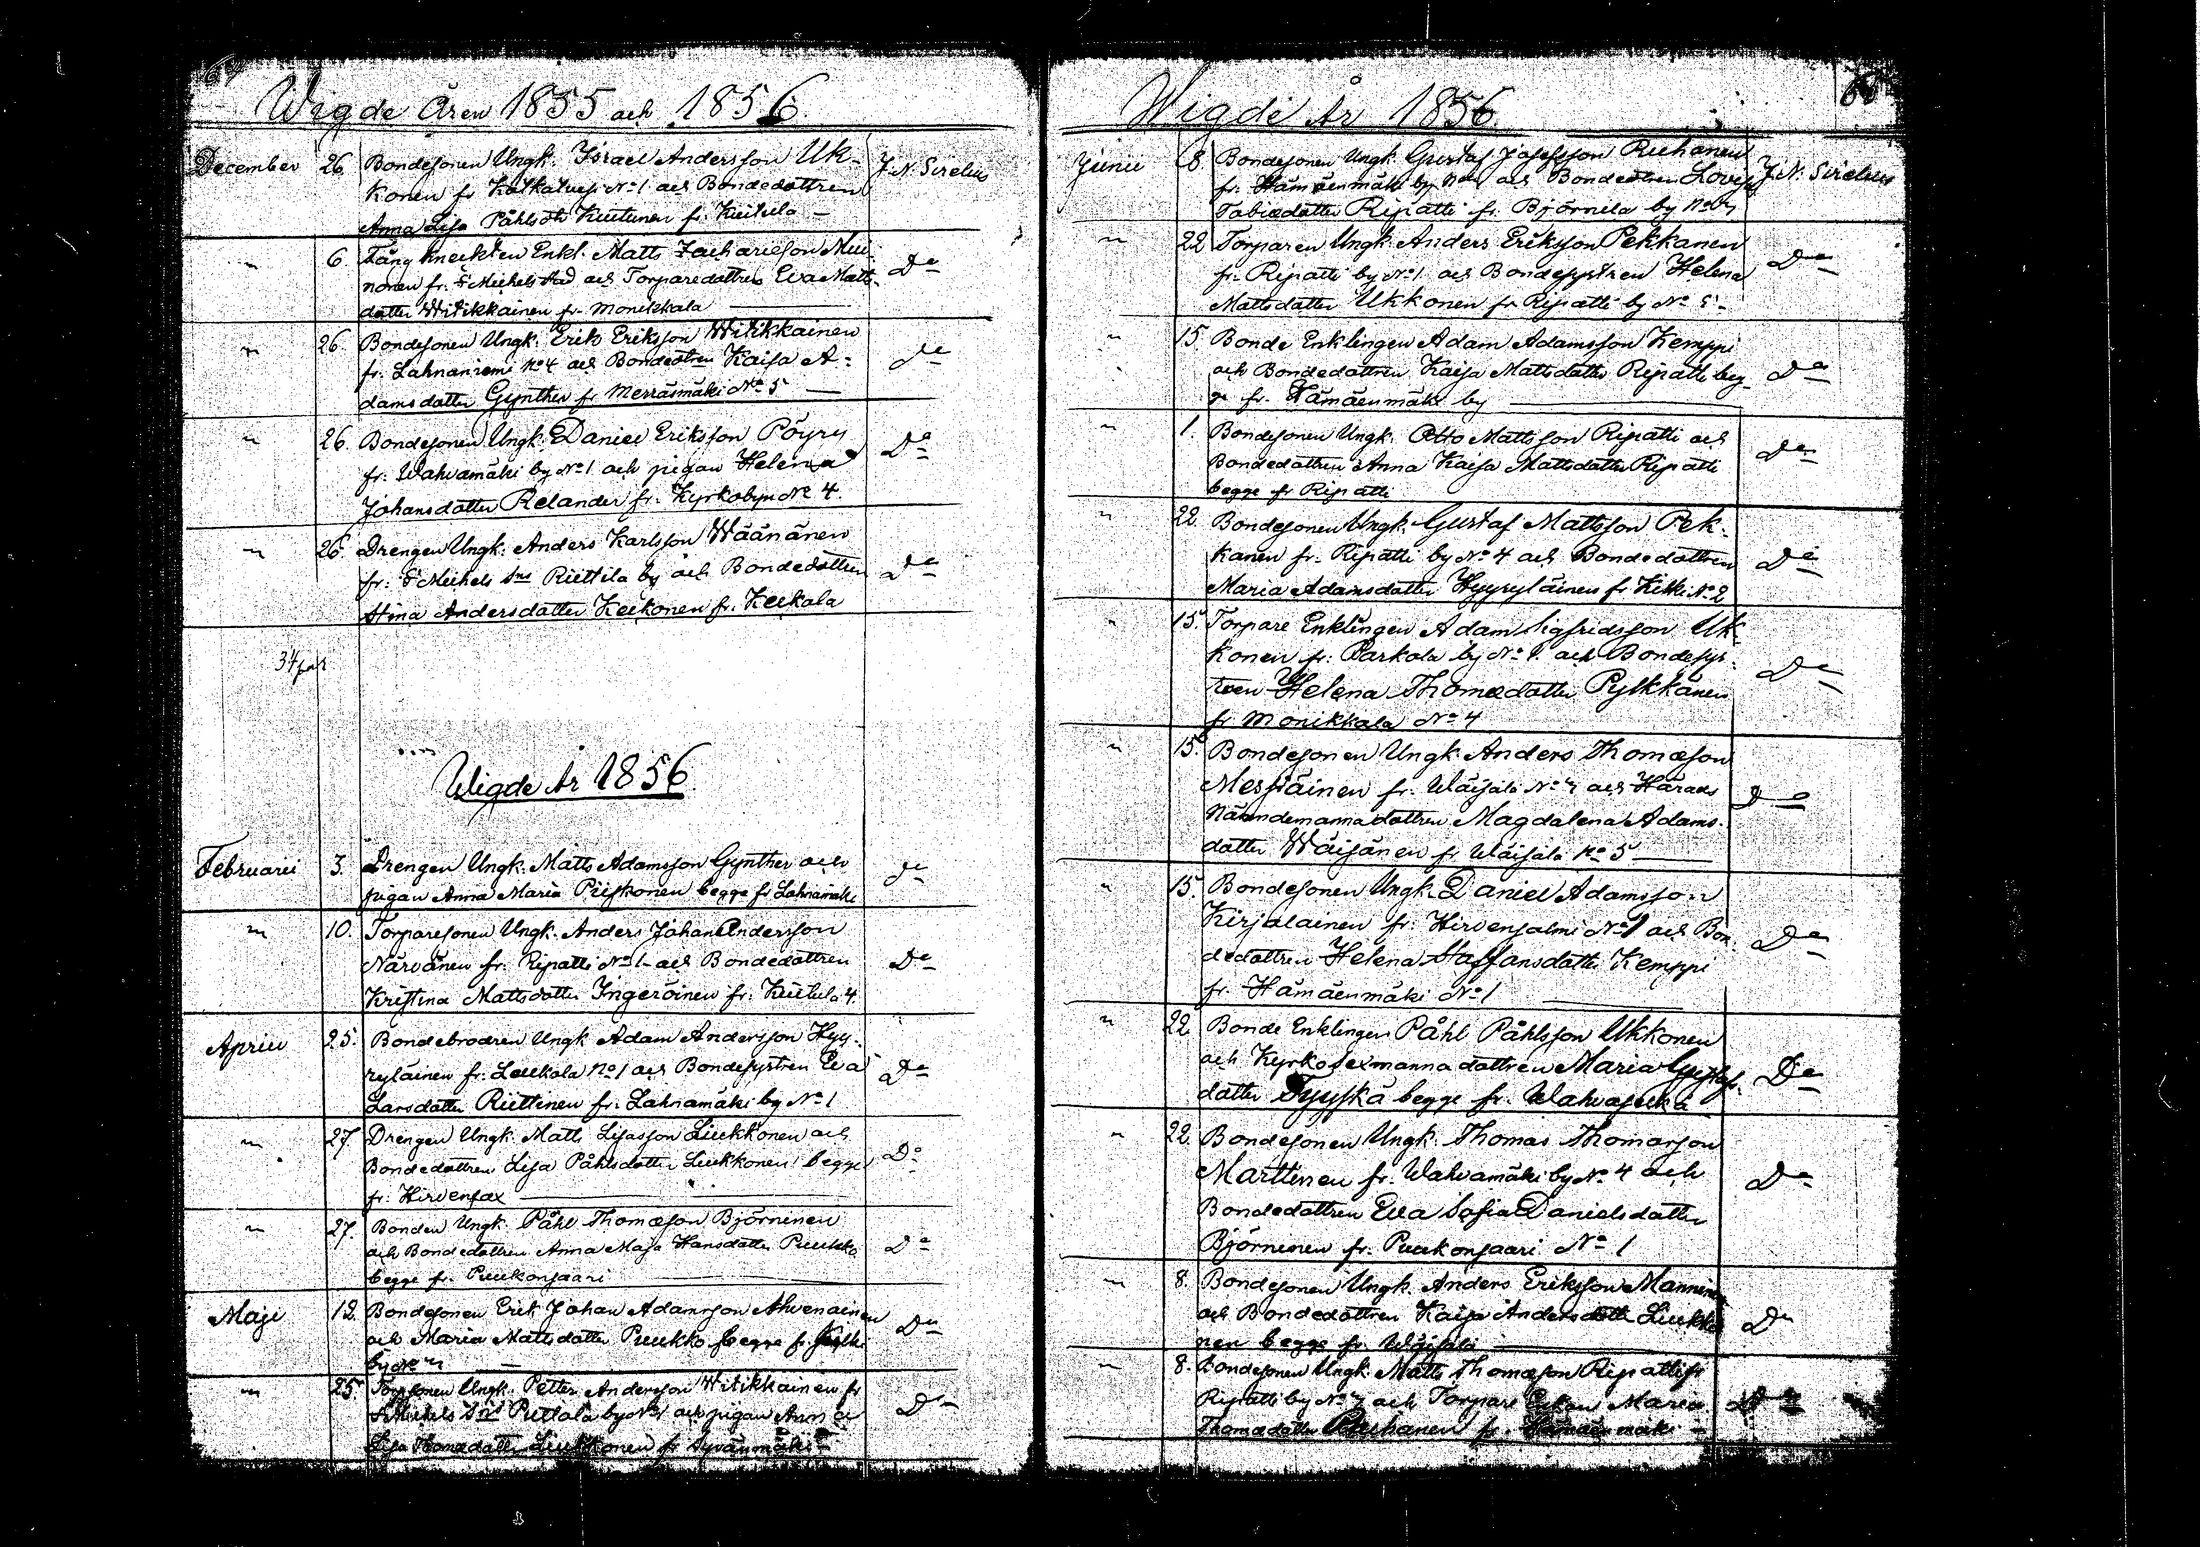 64
Wigde Åren 1855 och 1856.
December 26. Bondesonen Ungk. Israel Andersson Uk- J. N. Sirelius
konen fr. Kalkaturs No 1 och Bondedottren
Anna Lisa Påhlsdtr Kuitunen fr. Kuitula —
" 6. Fångknekten Enkl. Matts Zachariesson Mui- Do
nonen fr. St Michels stad och Torparedottren Eva Matts-
dotter Witikkainen fr. Monikkala
" 26. Bondesonen Ungk. Erik Eriksson Witikkainen do
fr. Lahnaniemi No 4 och Bondedtren Kaisa A-
damsdotter Gynther fr Merrasmäki No 5
" 26. Bondesonen Ungk. Daniel Eriksson Pöyry Do
fr. Wahvamäki by No 1 och pigan Helena
Johansdotter Relander fr. Kyrkobyn No 4.
" 26. Drengen Ungk. Anders Karlsson Wäänänen Do
fr. St Michels Sns Riittilä by och Bondedottren
Stina Andersdotter Keekonen fr. Keekala
34 par
Wigde År 1856.
Februarii 3. Drengen Ungk. Matts Adamsson Gynther och do
pigan Anna Maria Piiskonen begge fr Lahnamäki
" 10. Torparesonen Ungk. Anders Johan Andersson Do
Närvänen fr. Ripatti No 1 och Bondedottren
Kristina Mattsdotter Ingeröinen fr. Kuitula 4
Aprill 25. Bondebrodren Ungk Adam Andersson Hyy- Do
ryläinen fr. Leekala No 1 och Bondesystren Eva
Larsdotter Riittinen fr. Lahnamäki by No 1
" 27. Drengen Ungk. Matts Lisasson Liukkonen och Do
Bondedottren Lisa Påhlsdotter Liukkonen begge
fr. Hirvensax
" 27. Bonden Ungk. Påhl Thomasson Björninen Do
och Bondedottren Anna Maja Hansdotter Puukko
begge fr. Puukonsaari
Maji 12. Bondesonen Erik Johan Adamsson Ahvenainen Do
och Maria Mattsdotter Puukko begge fr
by No 7
" 25. Torpsonen Ungk. Petter Andersson Witikkainen fr Do
St Michels Sns Pittola by No 1 och pigan Anna
Lisa Thomasdotter Liukkonen fr Syvänmäki —
65
Wigde År 1856.
Junii 8. Bondesonen Ungk. Gustaf Josefsson Ruhanen J. N. Sirelius
fr. Hämäenmäki by No och Bondedottren Lovisa
Tobiedotter Ripatti fr. Björnilä by No 7
" 22 Torparen Ungk. Anders Eriksson Pekkanen Do
fr. Ripatti by No 1 och Bondesystren Helena
Mattsdotter Ukkonen fr Ripatti by No 5.
" 15 Bonde Enklingen Adam Adamsson Kemppi Do
och Bondedottren Kaisa Mattsdotter Ripatti beg-
ge fr. Hämäenmäki by
" 1. Bondesonen Ungk. Otto Mattsson Ripatti och Do
Bondedottren Anna Kaisa Mattsdotter Ripatti
begge fr Ripatti
" 22. Bondesonen Ungk. Gustaf Mattsson Pek- Do
kanen fr. Ripatti by No 4 och Bondedottren
Maria Adamsdotter Hyyryläinen fr Kitki No 2
" 15. Torpare Enklingen Adam Sigfridsson Uk- Do
konen fr. Parkola by No 1. och Bondesys-
tren Helena Thomedotter Pylkkänen
fr Monikkala No 4
" 15. Bondesonen Ungk. Anders Thomæson Do
Messiäinen fr. Wäisälä No 7 och Härads
Nämndemannadottren Magdalena Adams-
dotter Wäisänen fr Wäisälä No 5
" 15. Bondesonen Ungk. Daniel Adamsson Do
Kirjalainen fr. Hirvensalmi No 1 och Bon-
dedottren Helena Staffansdotter Kemppi
fr. Hämäenmäki No 1
" 22. Bonde Enklingen Påhl Påhlsson Ukkonen Do
och Kyrkosexmannadottren Maria Gustafs-
dotter Tyyskä begge fr.
" 22 Bondesonen Ungk. Thomas Thomasson Do
Marttinen fr. Wahvamäki by No 4 och
Bondedottren Eva Sofia Danielsdotter
Björninen fr. Puukonsaari No 1
" 8. Bondesonen Ungk. Anders Eriksson Manninen Do
och Bondedottren Kaisa Andersdotter Liukko-
nen begge fr. Wäisälä
" 8. Bondesonen Ungk. Matts Thomæson Ripatti fr Do
Ripatti by No 7 och Torpare Maria
Thomasdotter Ruuhanen fr. Hämäenmäki —